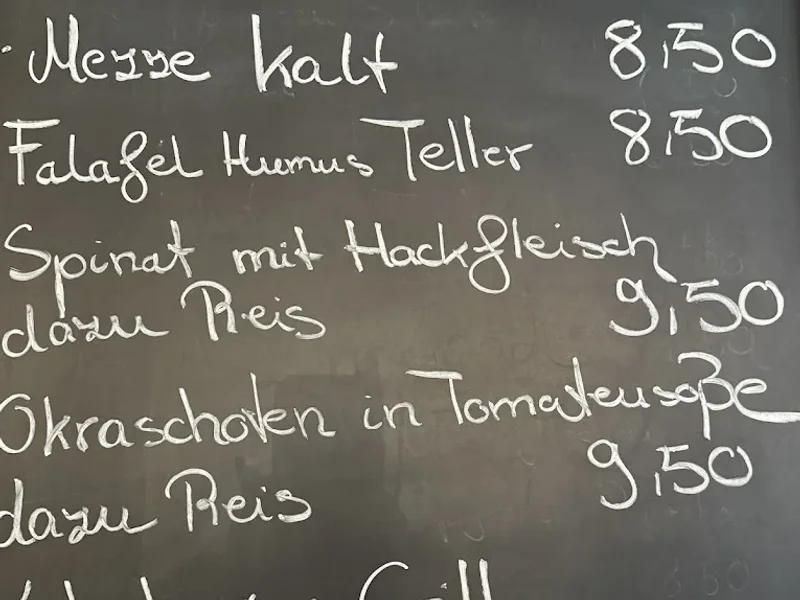 Mezze kalt 8,50
Falafel Humus Teller 8,50
Spinat mit Hackfleisch
dazu Reis 9,50
Okraschoten in Tomatensoße
dazu Reis 9,50